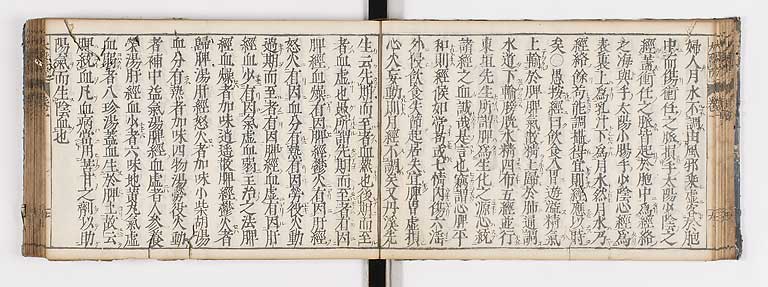 婦人月水不調由風邪乘虛客於胞
中而傷衝任之脈損手太陽少陰之
經蓋衝任之脈皆起於胞中為經絡
之海與手太陽小腸手少陰心經為
表裏上為乳汁下為月水然月水乃
經絡餘苟能調攝得宜則經應以時
矣○愚按經曰飲食入胃遊溢精氣
上輸於脾脾氣散精上歸於肺通調
水道下輸膀胱水精四布五經並行
東垣先生所謂脾為生化之源心統
諸經之血誠哉是言也竊謂心脾平
和則經候如常苟或七情內傷六淫
外侵飲食失節起居失宜脾胃虛損
心火妄動則月經不調矣又丹溪先
生云先期而至者血熱也後期而至
者血虛也愚所謂先期而至者有因
脾經血燥有因脾經鬱火有因肝經
怒火有因血分有熱有因勞役火動
過期而至者有因脾經血虛有因肝
經血少有因氣虛血弱主治之法脾
經血燥者加味逍遙散脾經鬱火者
歸脾湯肝經怒火者加味小柴胡湯
血分有熱者加味四物湯勞役火動
者補中益氣湯脾經血虛者人參養
榮湯肝經血少者六味地黃丸氣虛
血弱者八珍湯蓋血生於脾土故云
脾統血凡血病當用苦甘之劑以助
陽氣而生陰血也